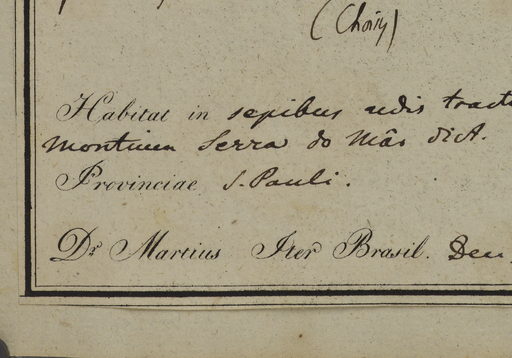 (Choisy)
Habitat in sepibus udis tractu
montium Serra do Mâr dict.
Provinciae S. Pauli.
Dr. Martius Iter Brasil. Dec.